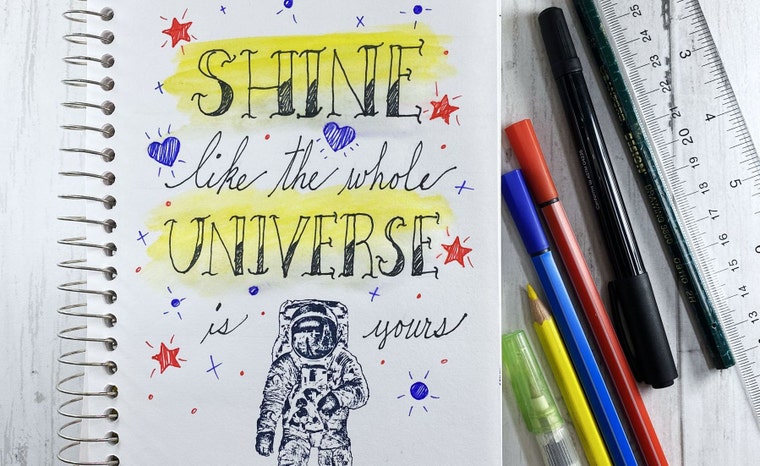 SHINE
like the whole
UNIVERSE
is yours
DESIGN
3
4
5
25
24
23
22
21
20
19
18
17
16
15
14
13
12